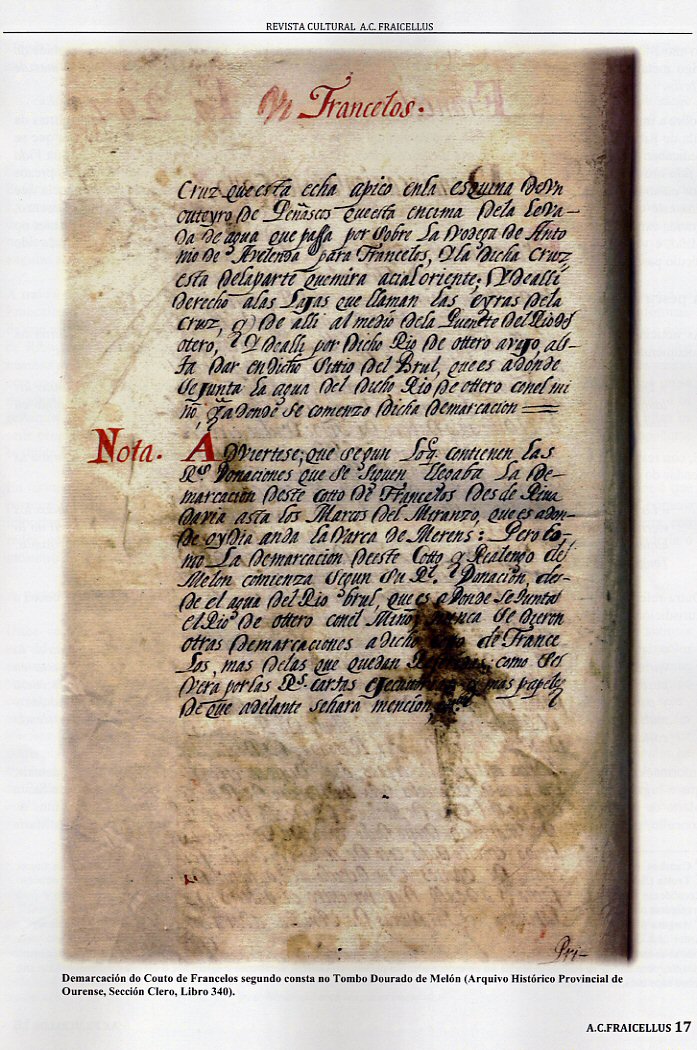 REVISTA CULTURAL A.C. FRAICELLUS
Francelos.
Cruz que esta echa a pico en la esquina de Vn
outeyro de Peñascos que esta encima de la leva-
da de agua que passa por sobre la Vodega de Anto
nio de Avelenda para Francelos, Y la dicha Cruz
esta de la parte que mira acia el oriente; Y de alli
derecho a las Lajas que llaman las eyras de la
Cruz, y de alli al medio de la Puente del Rio de
otero, Y de alli por dicho Rio de ottero avajo, as-
ta dar en dicho Sittio del Brul, que es a donde
se junta la agua del dicho Rio de ottero con el mi
ño, y a donde se comenzo dicha demarcacion
Nota. Adviertese; que segun lo q. contienen las
Rs. Donaciones que se siguen llegaba la de-
marcacion deste Cotto de Francelos des de Riva
davia asta los Marcos del Miranzo, que es adon-
de oy dia anda la Varca de Merens: Pero co-
mo la demarcacion deeste Cotto y Realengo de
Melon comienza segun su Rl. Donacion, des-
de el agua del Rio brul, que es a donde se Junta
el Rio de ottero con el Miño nunca se dieron
otras demarcaciones a dicho de France
los, mas de las que quedan como se
Vera por las Rs. cartas y mas papeles
de que adelante sehara mencion
Demarcación do Couto de Francelos segundo consta no Tombo Dourado de Melón (Arquivo Histórico Provincial de
Ourense, Sección Clero, Libro 340).
A.C.FRAICELLUS 17